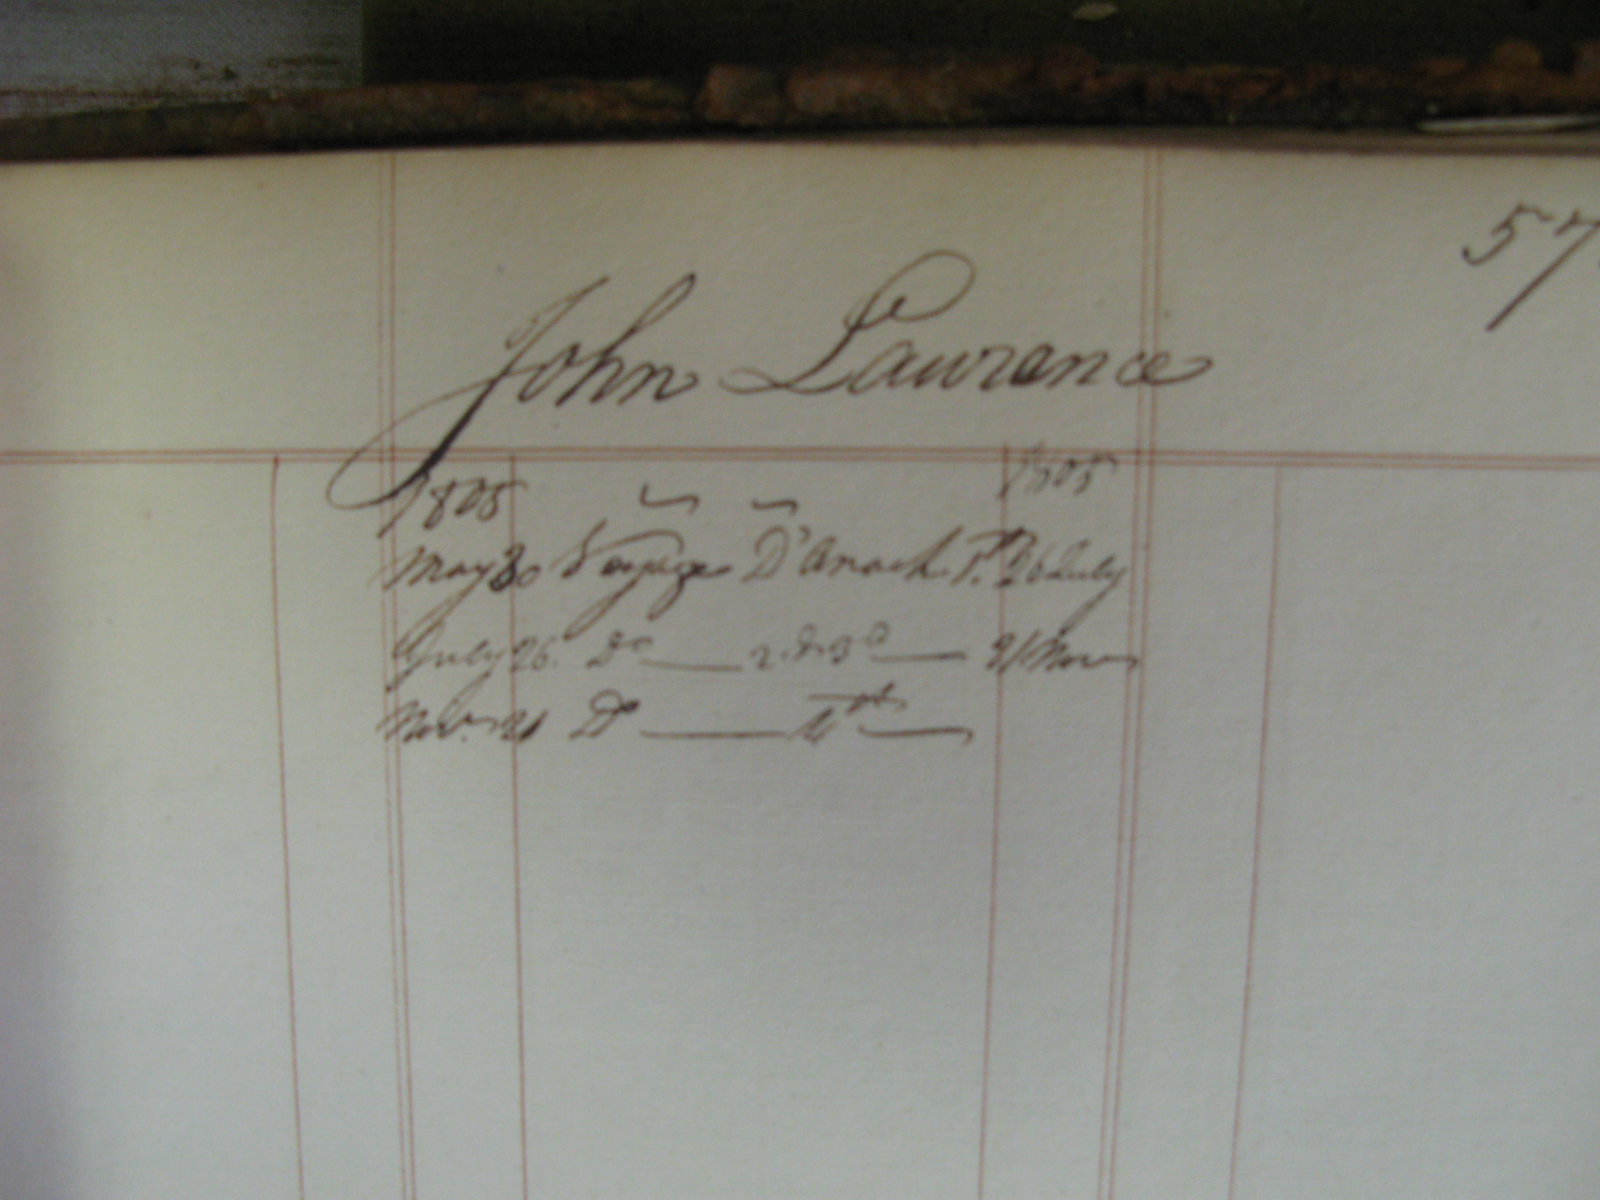 57
John Lawrence
1805 1805
May 30 Voyage D'Anach. T. 26 July
July 26. Do 2. & 3d 21 Nov
Nov. 21 Do 4th